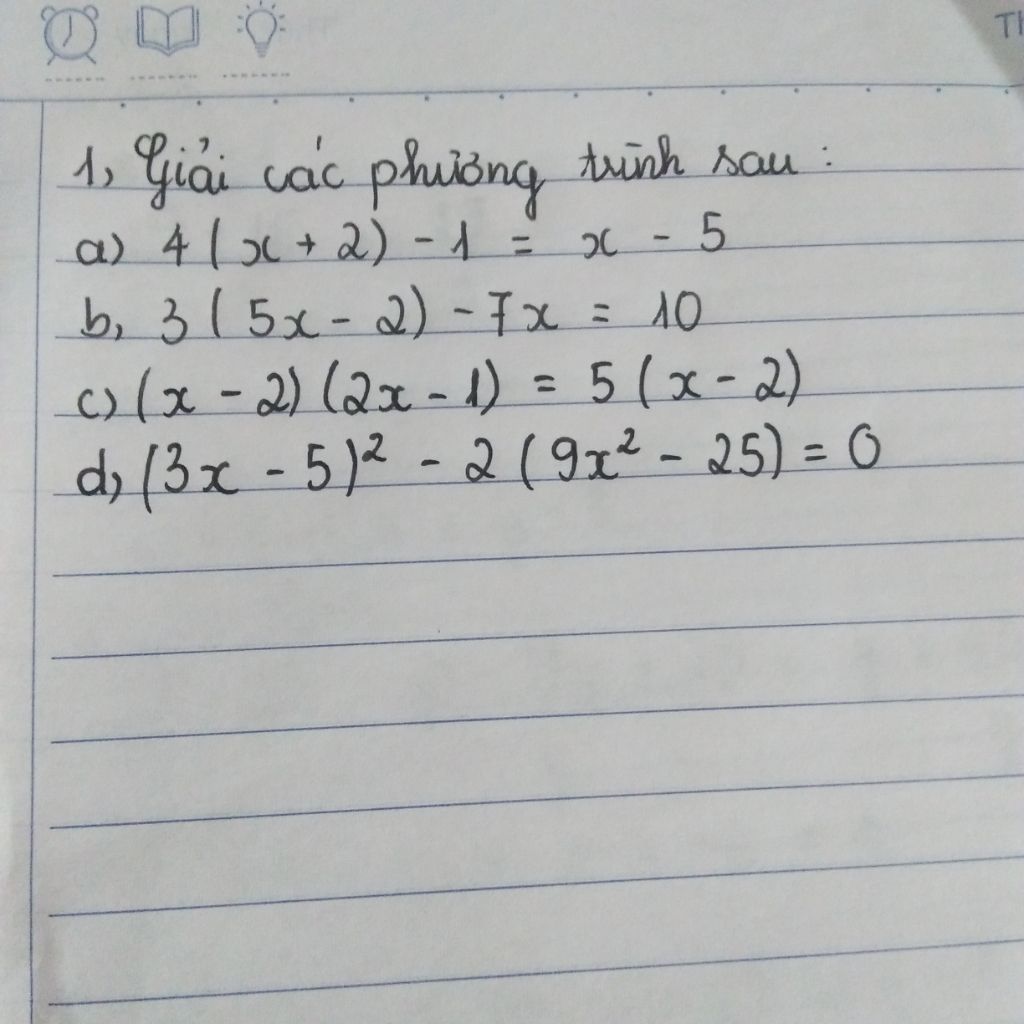 1, Giải các phương trình sau :
a) 4 ( x + 2 ) - 1 = x - 5
b, 3 ( 5x - 2 ) - 7x = 10
c) (x - 2) (2x - 1) = 5 ( x - 2)
d, (3x - 5)² - 2 ( 9x² - 25) = 0